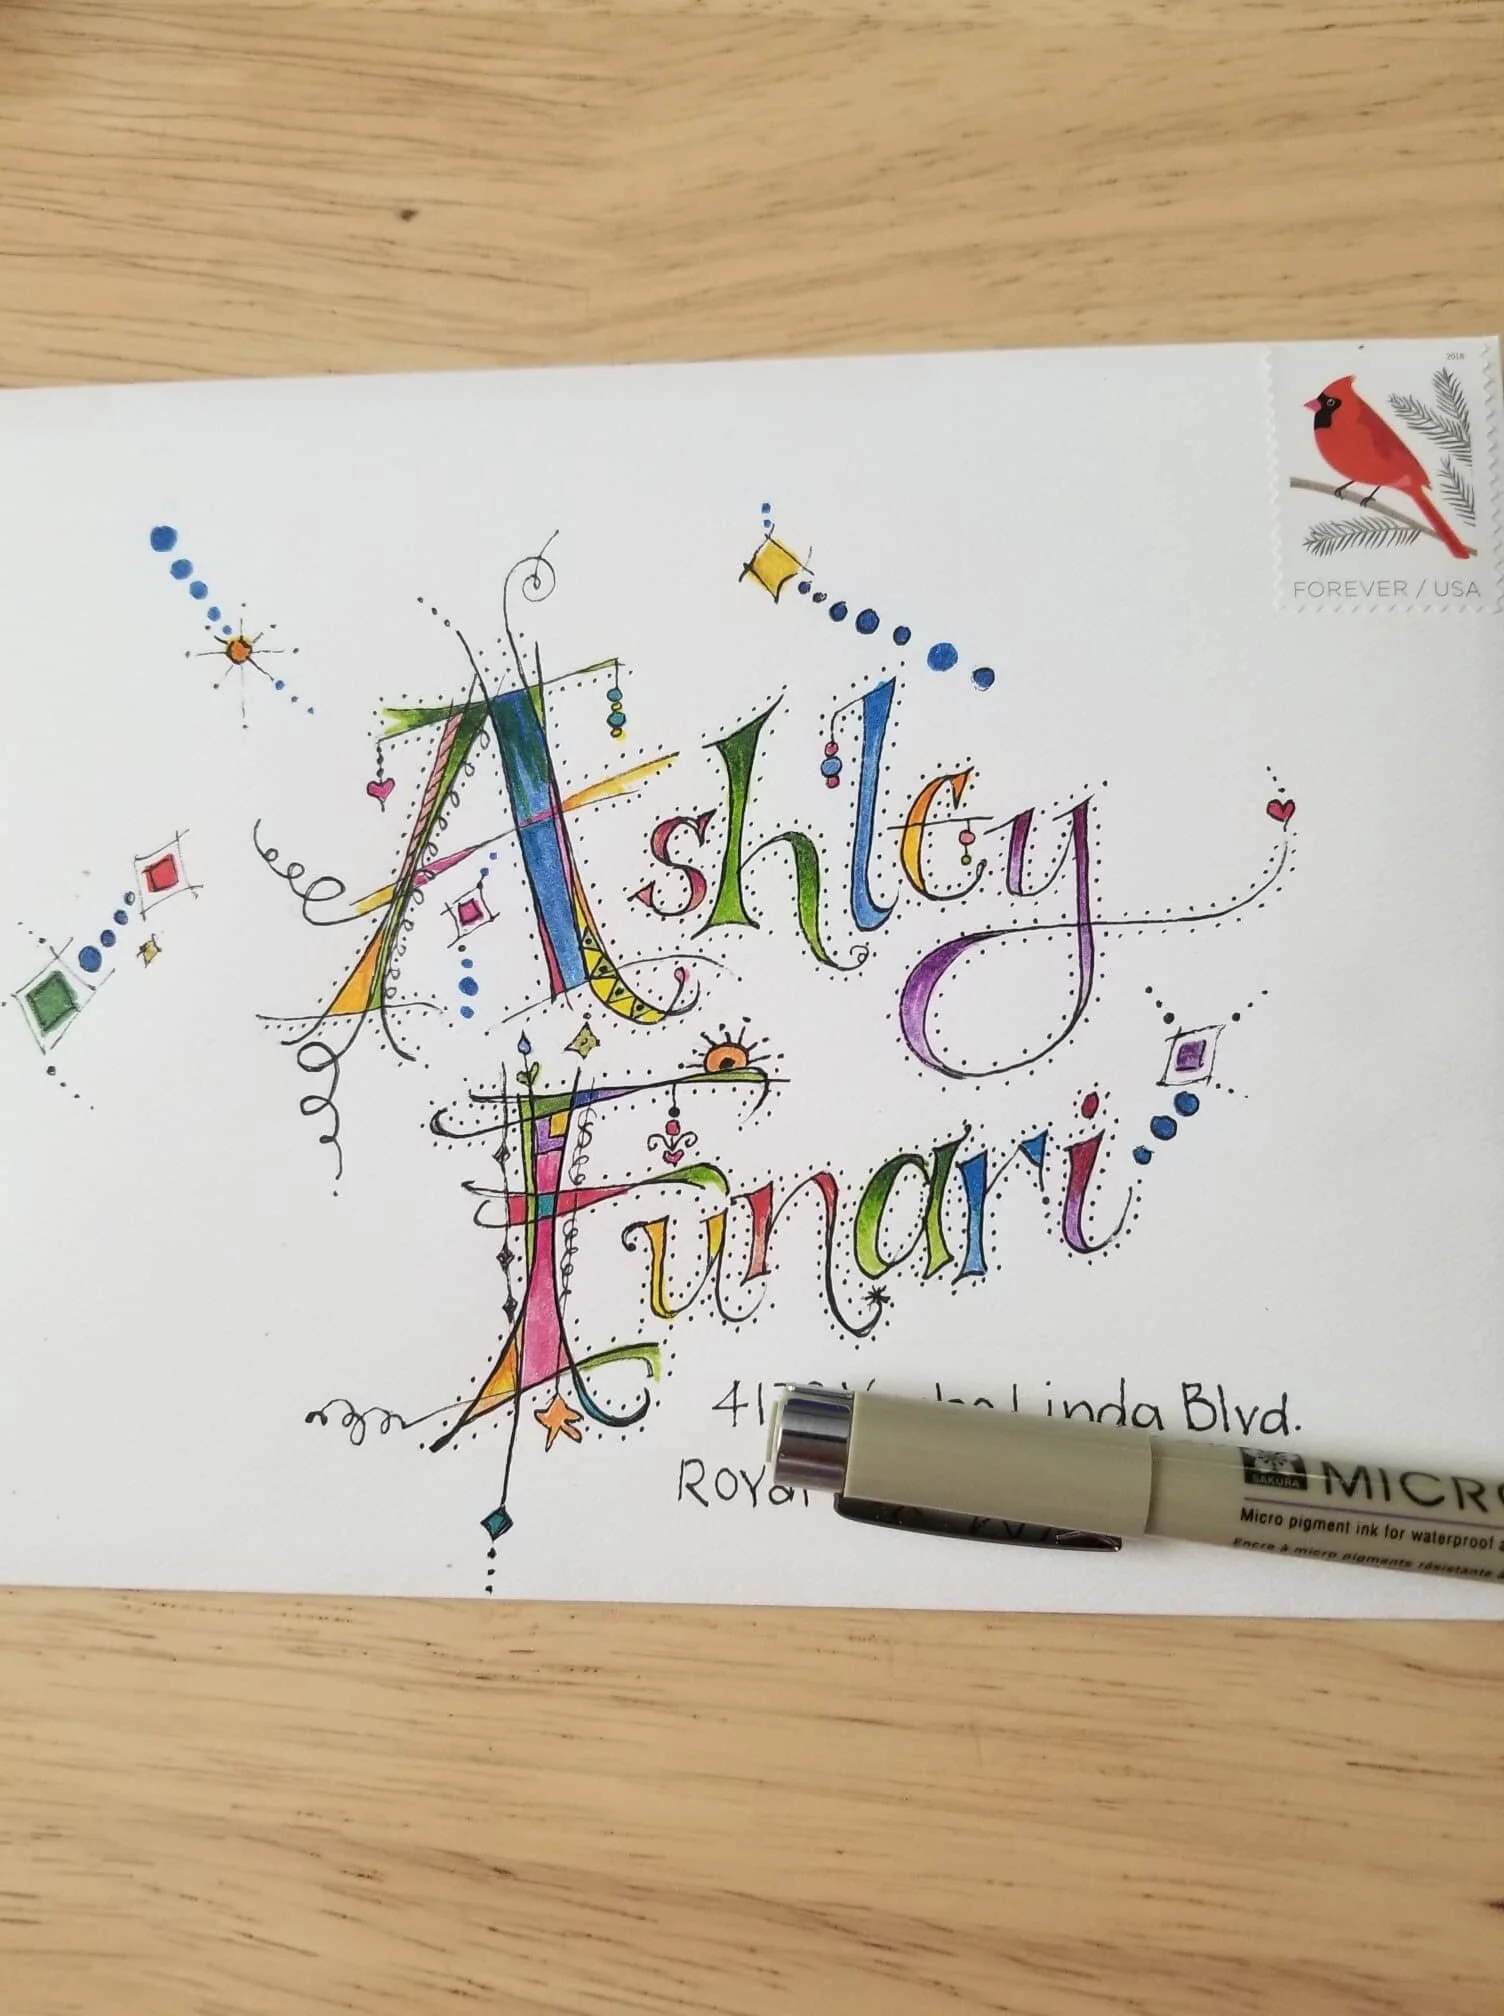 2018
FOREVER / USA
Ashley
Funari
Linda Blvd.
Royal
SAKURA
MICRO
Micro pigment ink for waterproof
Encre à micro pigments résistante à